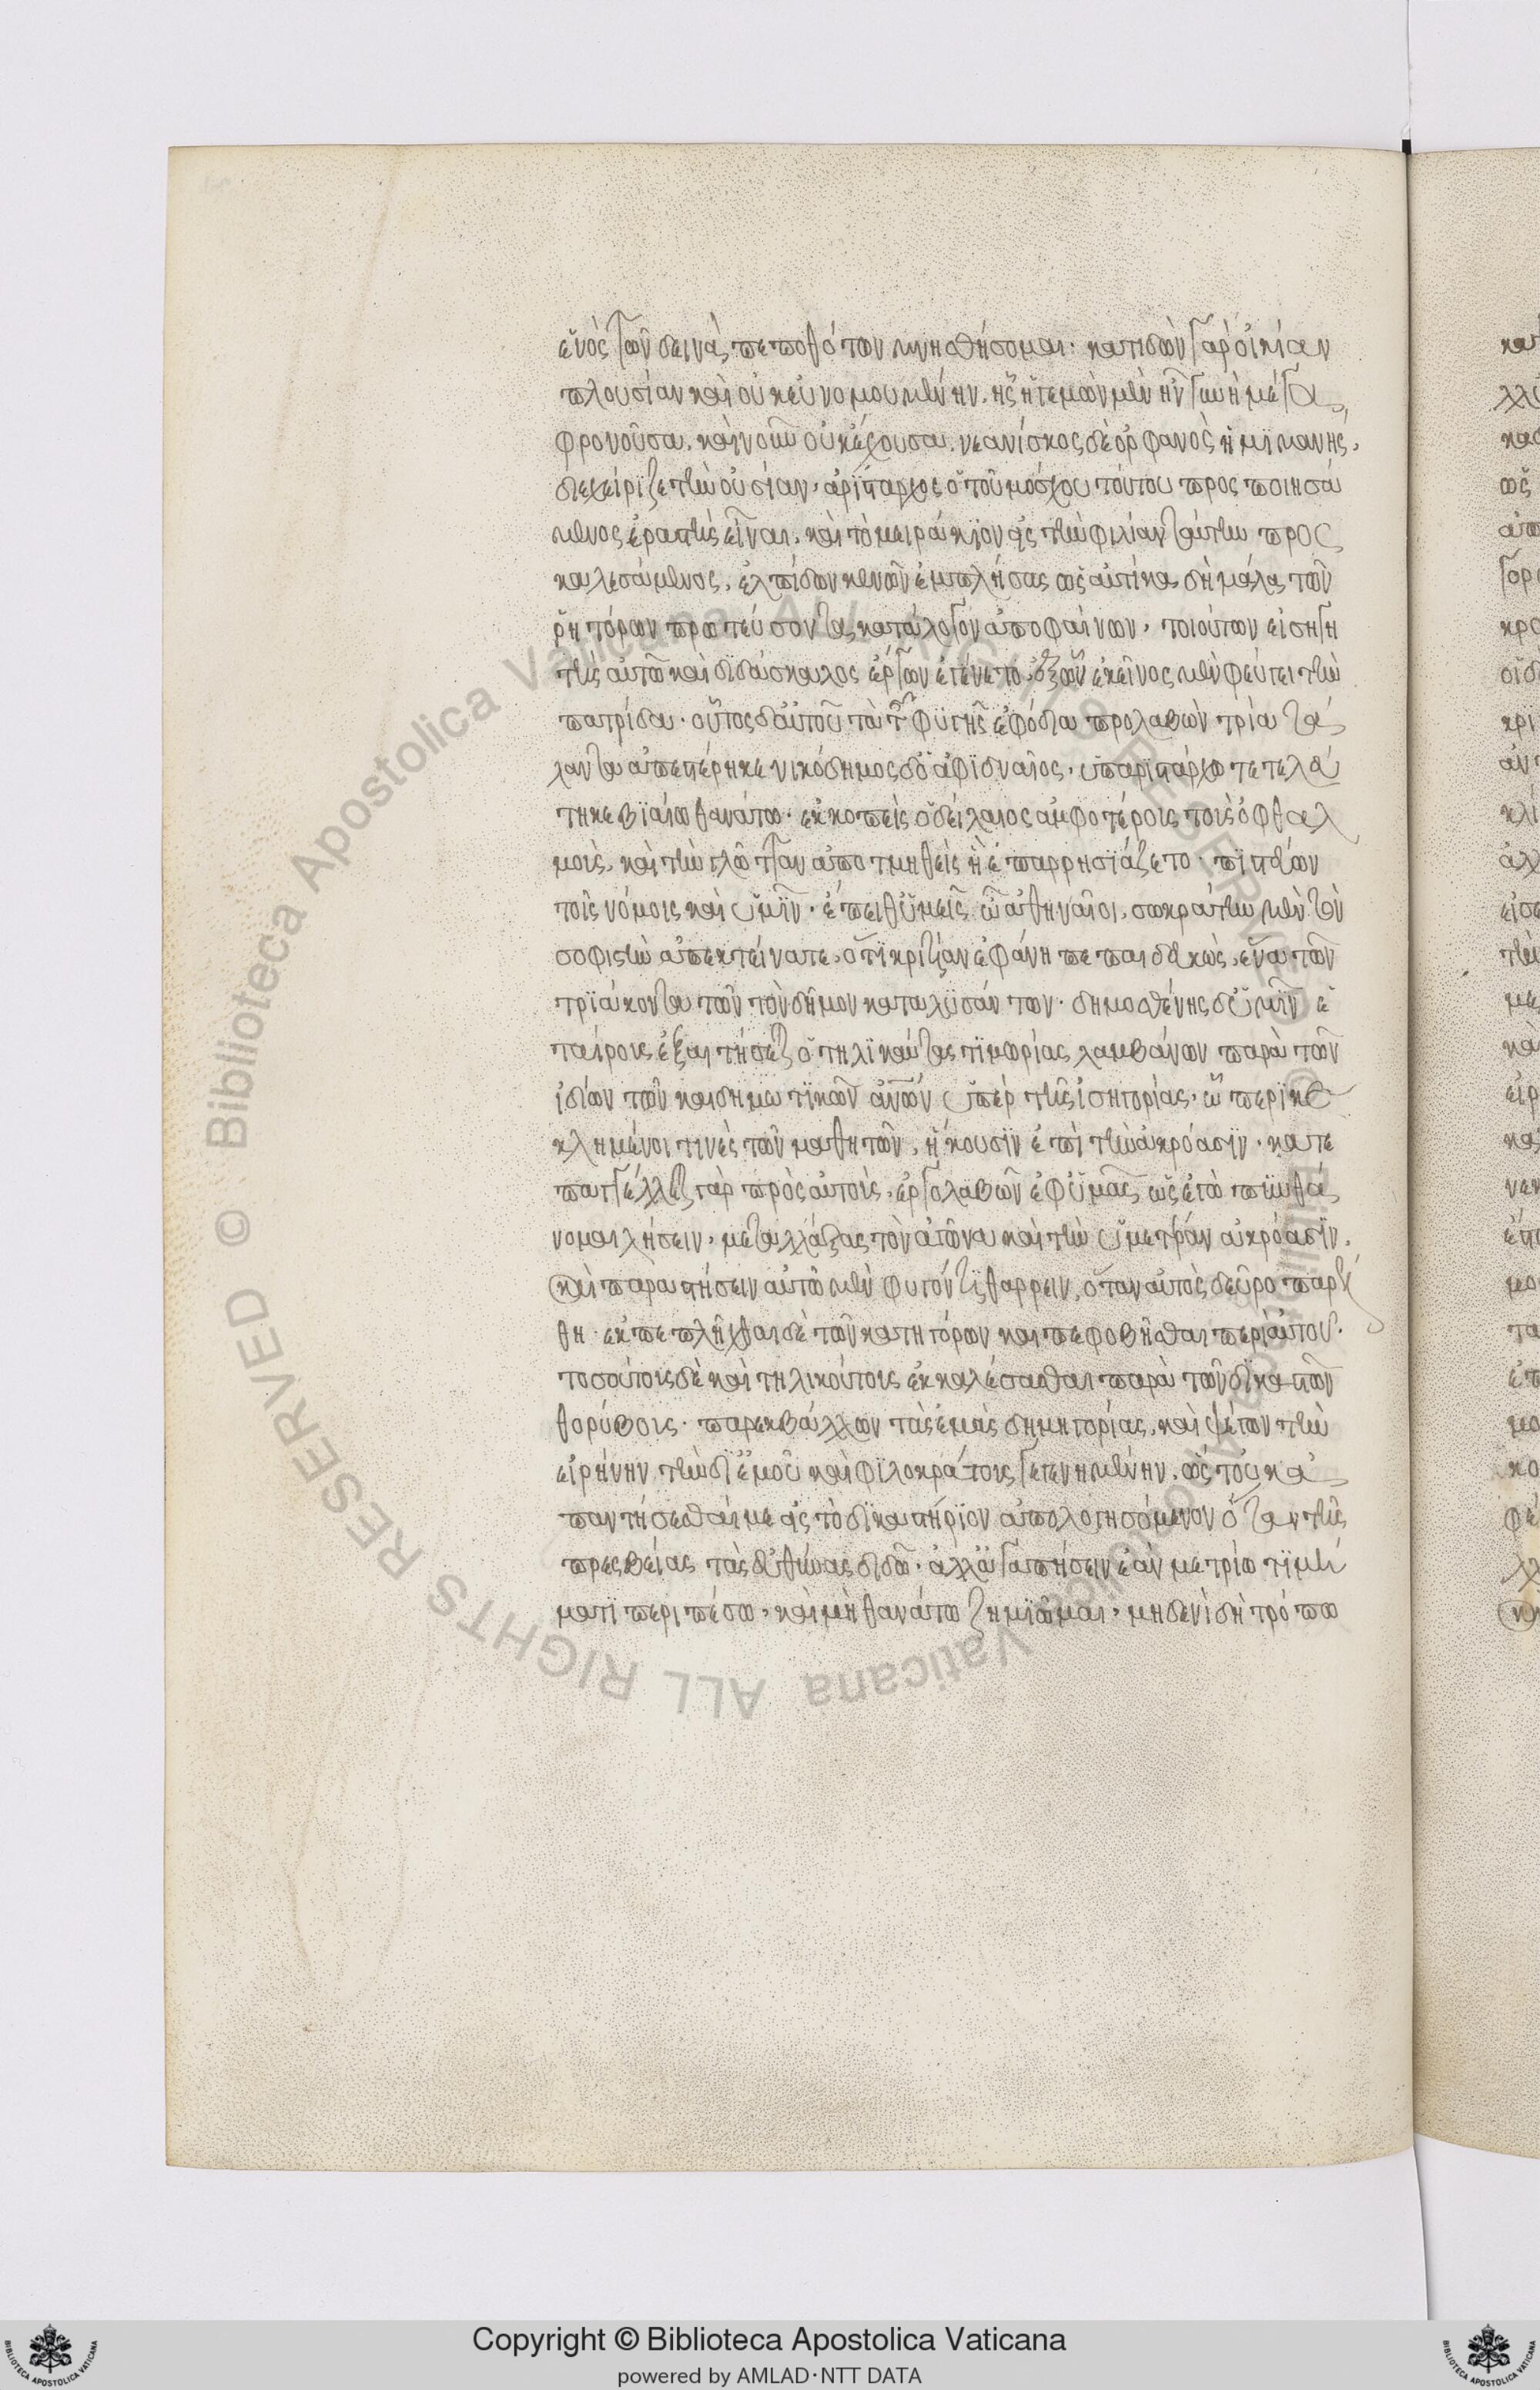 ἑνὸς γοῦν δεινὰ πεπονθότων μνησθήσομαι· κατιδὼν γὰρ οἰκίαν
πλουσίαν καὶ οὐκ εὐνομουμένην. ἧς ἡγεμὼν μὲν ἦν γυνὴ μέγα
φρονοῦσα. καὶ νοῦν οὐκ ἔχουσα. νεανίσκος δὲ ὀρφανὸς ἡμιμανὴς,
διεχείριζε τὴν οὐσίαν. ἀρίσταρχος ὁ τοῦ μόσχου τούτου προσποιησά
μενος ἐραστὴς εἶναι. καὶ τὸ μειράκιον εἰς τὴν φιλίαν ταύτην προς
καλεσάμενος. ἐλπίδων κενῶν ἐμπλήσας ὡς αὐτίκα δὴ μάλα τῶν
ῥητόρων πρωτεύσοντα, κατάλογον ἀποφαίνων. τοιούτων εἰσηγη
τὴς αὐτῶ καὶ διδάσκαλος ἔργων ἐγένετο. ἐξ ὧν ἐκεῖνος μὲν φεύγει τὴν
πατρίδα. οὗτος δ' αὐτοῦ τὰ τῆς φυγῆς ἐφόδια προλαβὼν τρία τά
λαντα ἀπεστέρηκε νικόδημος δ' ὁ ἀφιδναῖος. ὑπ' ἀριστάρχου τετελεύ
τηκε βιαίω θανάτω. ἐκκοπεὶς ὁ δείλαιος ἀμφοτέρους τοὺς ὀφθαλ
μοὺς, καὶ τὴν γλῶτταν ἀποτμηθεὶς ἧ ἐπαρρησιάζετο. πιστεύων
τοῖς νόμοις καὶ ὑμῖν. ἔπειθ' ὑμεῖς ὦ ἀθηναῖοι. σωκράτην μὲν τὸν
σοφιστὴν ἀπεκτείνατε. ὅτι κριτίαν ἐφάνη πεπαιδευκὼς. ἕνα τῶν
τριάκοντα τῶν τὸν δῆμον καταλυσάντων. δημοσθένης δ' ὑμῖν ἑ
ταίρους ἐξαιτήσεται ὁ τηλικαύτας τιμωρίας λαμβάνων παρὰ τῶν
ἰδίων τῶν καὶ δημοτικῶν ἀνῶν ὑπὲρ τῆς ἰσηγορίας. ὧ περικε
κλημένοι τινὲς τῶν μαθητῶν. ἥκουσιν ἐπὶ τὴν ἀκρόασιν. κατε
παγγέλλεται γὰρ πρὸς αὐτοὺς. ἐργολαβῶν ἐφ' ὑμᾶς, ὡς ἐγὼ πυνθά
νομαι λήσειν. μεταλλάξας τὸν ἀγῶνα καὶ τὴν ὑμετέραν ἀκρόασιν.
καὶ παραστήσειν αὐτῶ μὲν φυγόντι θαρρεῖν, ὅταν αὐτὸς δεῦρο παρέλ
θη. ἐκπεπλῆχθαι δὲ τῶν κατηγόρων καὶ πεφοβῆσθαι περὶ αὑτοῦ.
τοσούτους δὲ καὶ τηλικούτους ἐκκαλέσασθαι παρὰ τῶν δικαστῶν
θορύβους. παρεκβάλλων τὰς ἐμὰς δημηγορίας. καὶ ψέγων τὴν
εἰρήνην τὴν δι' ἐμοῦ καὶ φιλοκράτους γεγενημένην. ὥστ' οὐκ ἀ
παντήσεσθαί με εἰς τὸ δικαστήριον ἀπολογησόμενον ὅταν τῆς
πρεσβείας τὰς εὐθύνας διδῶ. ἀλλ' ἀγαπήσειν ἐὰν μετρίω τιμή
ματι περιπέσω. καὶ μὴ θανάτω ζημιῶμαι. μηδενὶ δὴ τρόπω
Copyright © Biblioteca Apostolica Vaticana
powered by AMLAD·NTT DATA